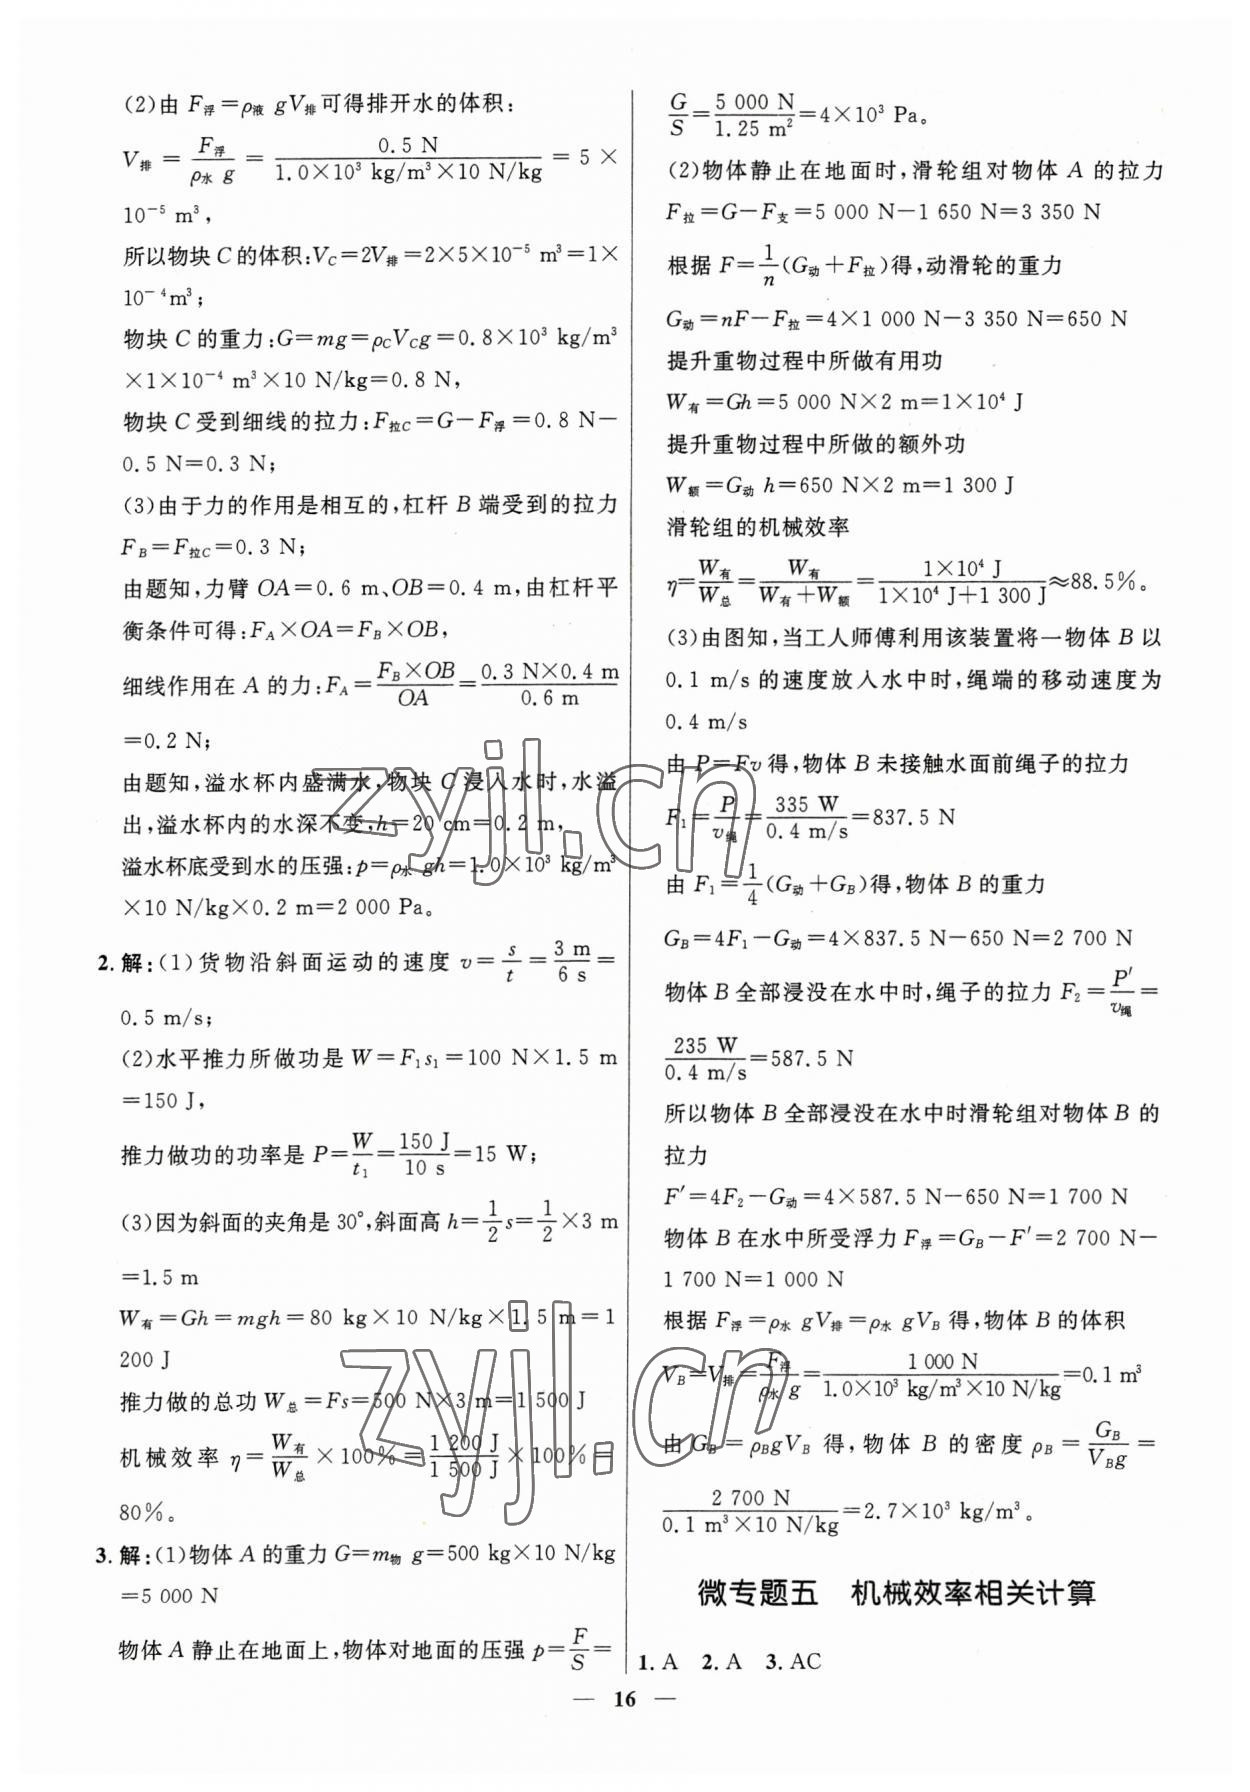 (2)由 F浮=ρ液 gV排可得排开水的体积:
V排 = F浮/(ρ水 g) = 0.5 N/(1.0×10³ kg/m³×10 N/kg) = 5 ×
10⁻⁵ m³,
所以物块 C 的体积:V_C=2V排=2×5×10⁻⁵ m³=1×
10⁻⁴m³;
物块 C 的重力:G=mg=ρ_C V_C g=0.8×10³ kg/m³
×1×10⁻⁴ m³×10 N/kg=0.8 N,
物块 C 受到细线的拉力:F拉C=G-F浮=0.8 N-
0.5 N=0.3 N;
(3)由于力的作用是相互的,杠杆 B 端受到的拉力
F_B=F拉C=0.3 N;
由题知,力臂 OA=0.6 m、OB=0.4 m,由杠杆平
衡条件可得:F_A×OA=F_B×OB,
细线作用在 A 的力:F_A=(F_B×OB)/OA=(0.3 N×0.4 m)/0.6 m
=0.2 N;
由题知,溢水杯内盛满水,物块 C 浸入水时,水溢
出,溢水杯内的水深不变,h=20 cm=0.2 m,
溢水杯底受到水的压强:p=ρ水 gh=1.0×10³ kg/m³
×10 N/kg×0.2 m=2 000 Pa。
2.解:(1)货物沿斜面运动的速度 v=s/t=3 m/6 s=
0.5 m/s;
(2)水平推力所做功是 W=F₁s₁=100 N×1.5 m
=150 J,
推力做功的功率是 P=W/t₁=150 J/10 s=15 W;
(3)因为斜面的夹角是 30°,斜面高 h=1/2 s=1/2×3 m
=1.5 m
W有=Gh=mgh=80 kg×10 N/kg×1.5 m=1
200 J
推力做的总功 W总=Fs=500 N×3 m=1 500 J
机械效率 η=W有/W总×100%=1 200 J/1 500 J×100%=
80%。
3.解:(1)物体 A 的重力 G=m物 g=500 kg×10 N/kg
=5 000 N
物体 A 静止在地面上,物体对地面的压强 p=F/S=
G/S=5 000 N/1.25 m²=4×10³ Pa。
(2)物体静止在地面时,滑轮组对物体 A 的拉力
F拉=G-F支=5 000 N-1 650 N=3 350 N
根据 F=1/n(G动+F拉)得,动滑轮的重力
G动=nF-F拉=4×1 000 N-3 350 N=650 N
提升重物过程中所做有用功
W有=Gh=5 000 N×2 m=1×10⁴ J
提升重物过程中所做的额外功
W额=G动 h=650 N×2 m=1 300 J
滑轮组的机械效率
η=W有/W总=W有/(W有+W额)=1×10⁴ J/(1×10⁴ J+1 300 J)≈88.5%。
(3)由图知,当工人师傅利用该装置将一物体 B 以
0.1 m/s 的速度放入水中时,绳端的移动速度为
0.4 m/s
由 P=Fv 得,物体 B 未接触水面前绳子的拉力
F₁=P/v绳=335 W/0.4 m/s=837.5 N
由 F₁=1/4(G动+G_B)得,物体 B 的重力
G_B=4F₁-G动=4×837.5 N-650 N=2 700 N
物体 B 全部浸没在水中时,绳子的拉力 F₂=P′/v绳=
235 W/0.4 m/s=587.5 N
所以物体 B 全部浸没在水中时滑轮组对物体 B 的
拉力
F′=4F₂-G动=4×587.5 N-650 N=1 700 N
物体 B 在水中所受浮力 F浮=G_B-F′=2 700 N-
1 700 N=1 000 N
根据 F浮=ρ水 gV排=ρ水 gV_B 得,物体 B 的体积
V_B=V排=F浮/(ρ水 g)=1 000 N/(1.0×10³ kg/m³×10 N/kg)=0.1 m³
由 G_B=ρ_B gV_B 得,物体 B 的密度 ρ_B=G_B/(V_B g)=
2 700 N/(0.1 m³×10 N/kg)=2.7×10³ kg/m³。
微专题五 机械效率相关计算
1.A 2.A 3.AC
— 16 —
zyjl.cn
zyjl.cn